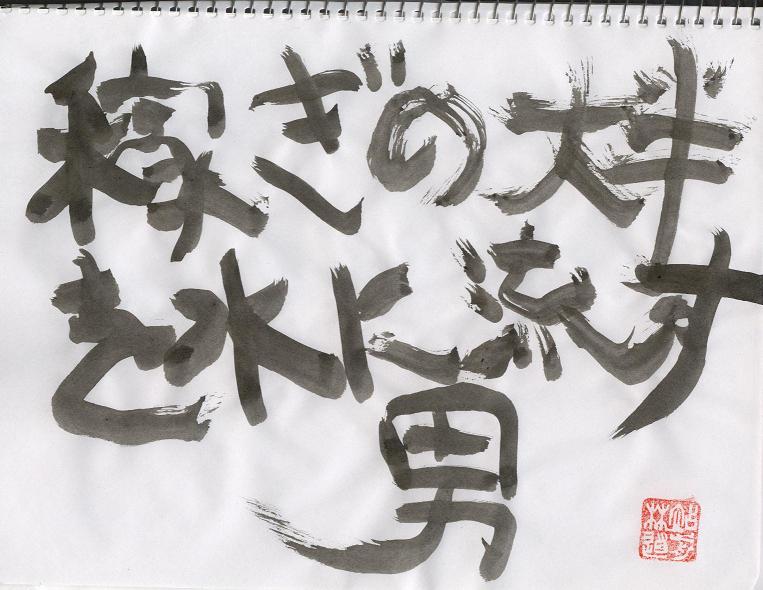 稼ぎの大半
を水に流す
男